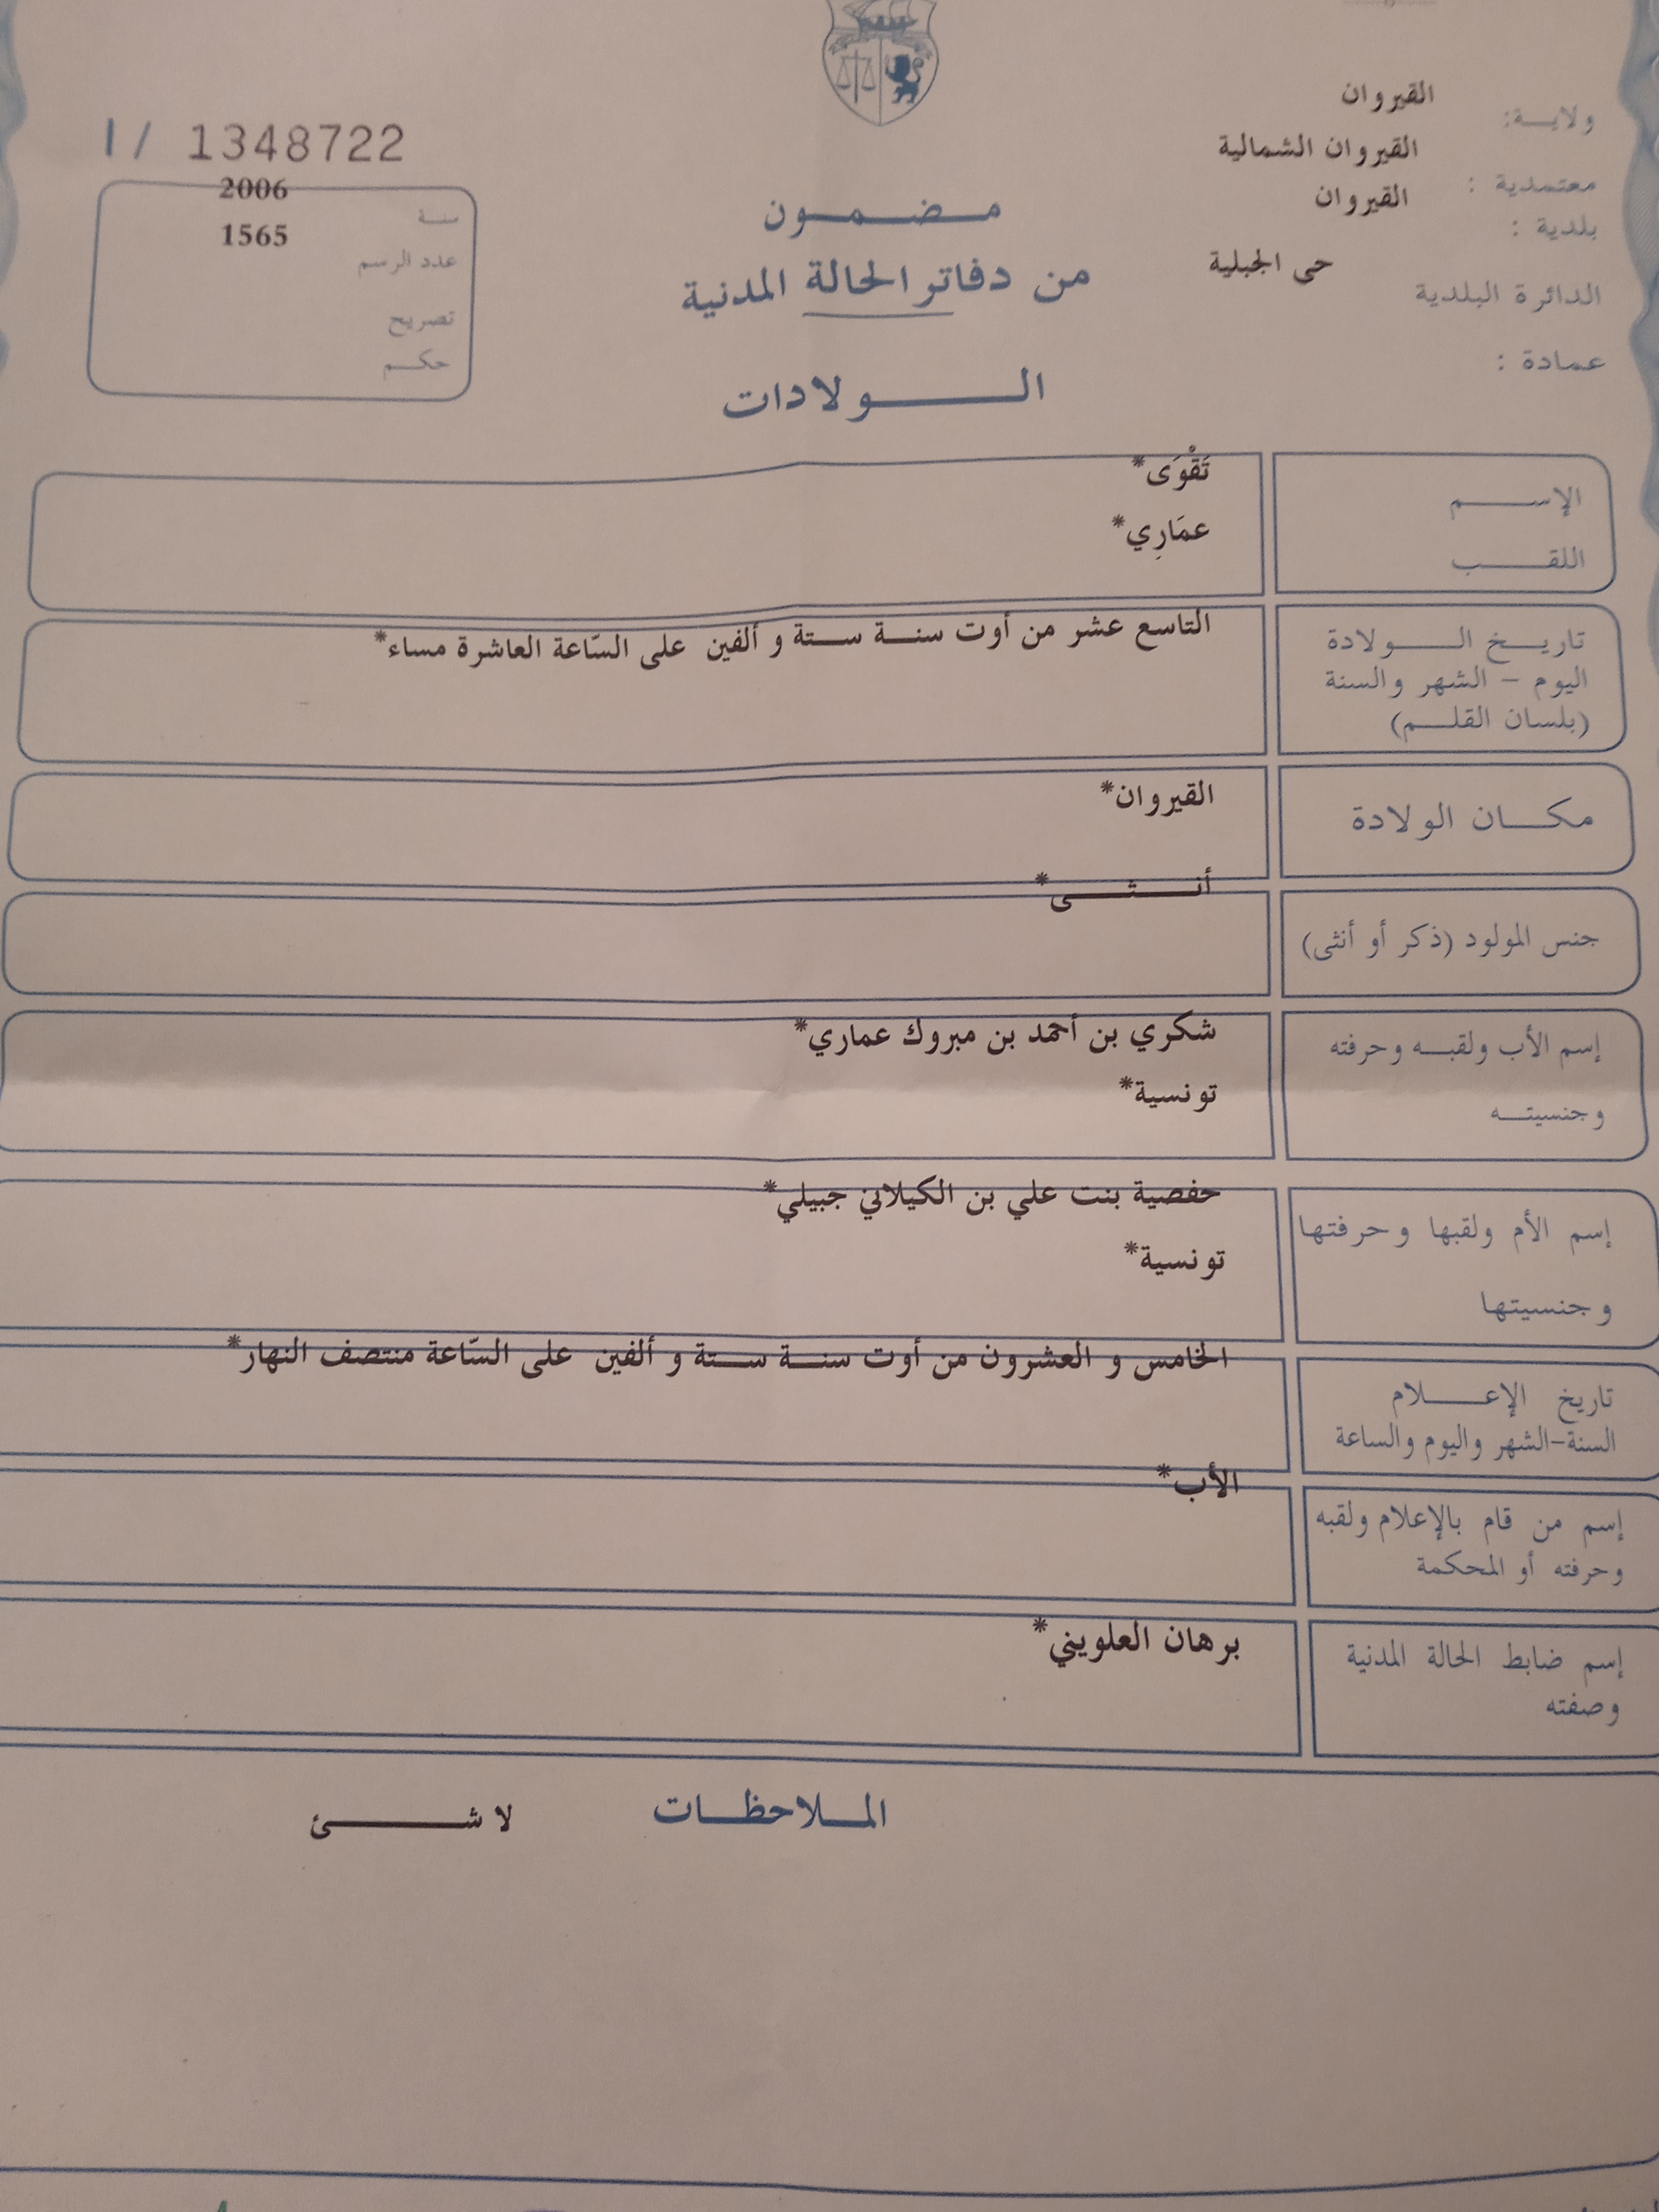 ولاية: القيروان
معتمدية : القيروان الشمالية
بلدية : القيروان
الدائرة البلدية حى الجبلية
عمادة :
مضمون
من دفاتر الحالة المدنية
الولادات
1 / 1348722
سنة 2006
عدد الرسم 1565
تصريح
حكم
الإسم تَقْوَى*
اللقب عمَارِي*
تاريخ الولادة التاسع عشر من أوت سنة ستة و ألفين على السّاعة العاشرة مساء*
اليوم - الشهر والسنة
(بلسان القلم)
مكان الولادة القيروان*
جنس المولود (ذكر أو أنثى) أنثى*
إسم الأب ولقبه وحرفته شكري بن أحمد بن مبروك عماري*
وجنسيته تونسية*
إسم الأم ولقبها وحرفتها حفصية بنت علي بن الكيلاني جبيلي*
وجنسيتها تونسية*
تاريخ الإعلام الخامس و العشرون من أوت سنة ستة و ألفين على السّاعة منتصف النهار*
السنة-الشهر واليوم والساعة
إسم من قام بالإعلام ولقبه الأب*
وحرفته أو المحكمة
إسم ضابط الحالة المدنية برهان العلويني*
وصفته
الملاحظات لا شئ